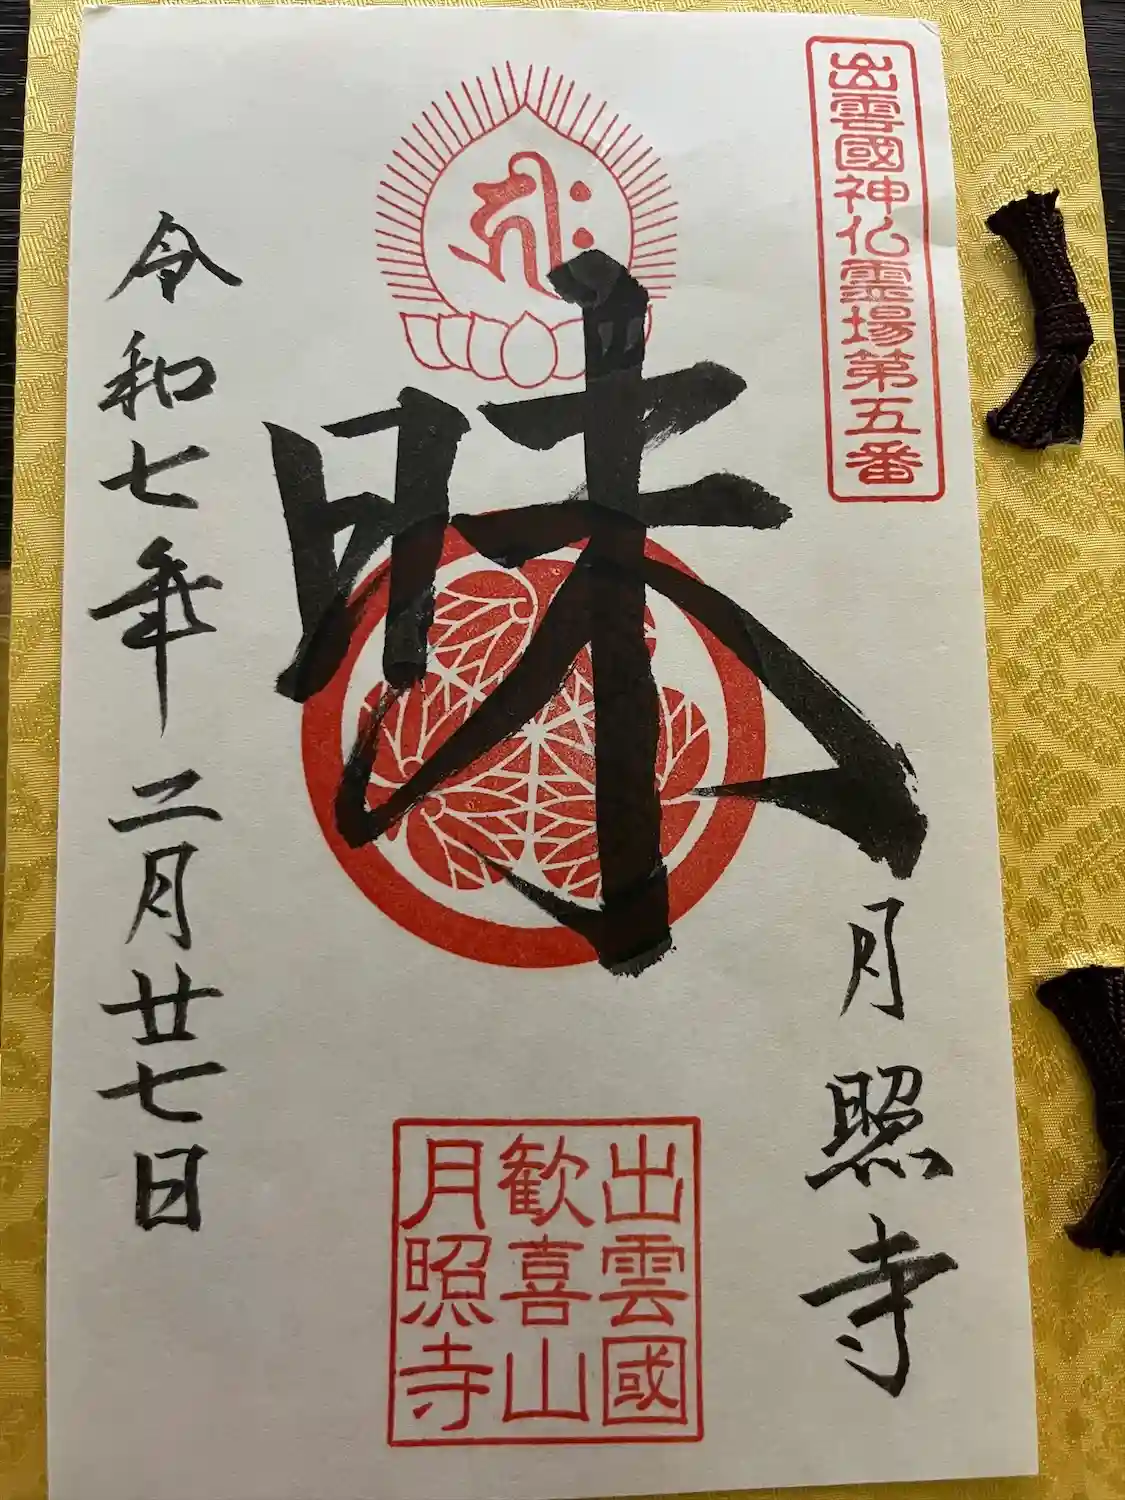 出雲國神仏霊場第五番
昧
月照寺
出雲國
歓喜山
月照寺
令和七年二月廿七日